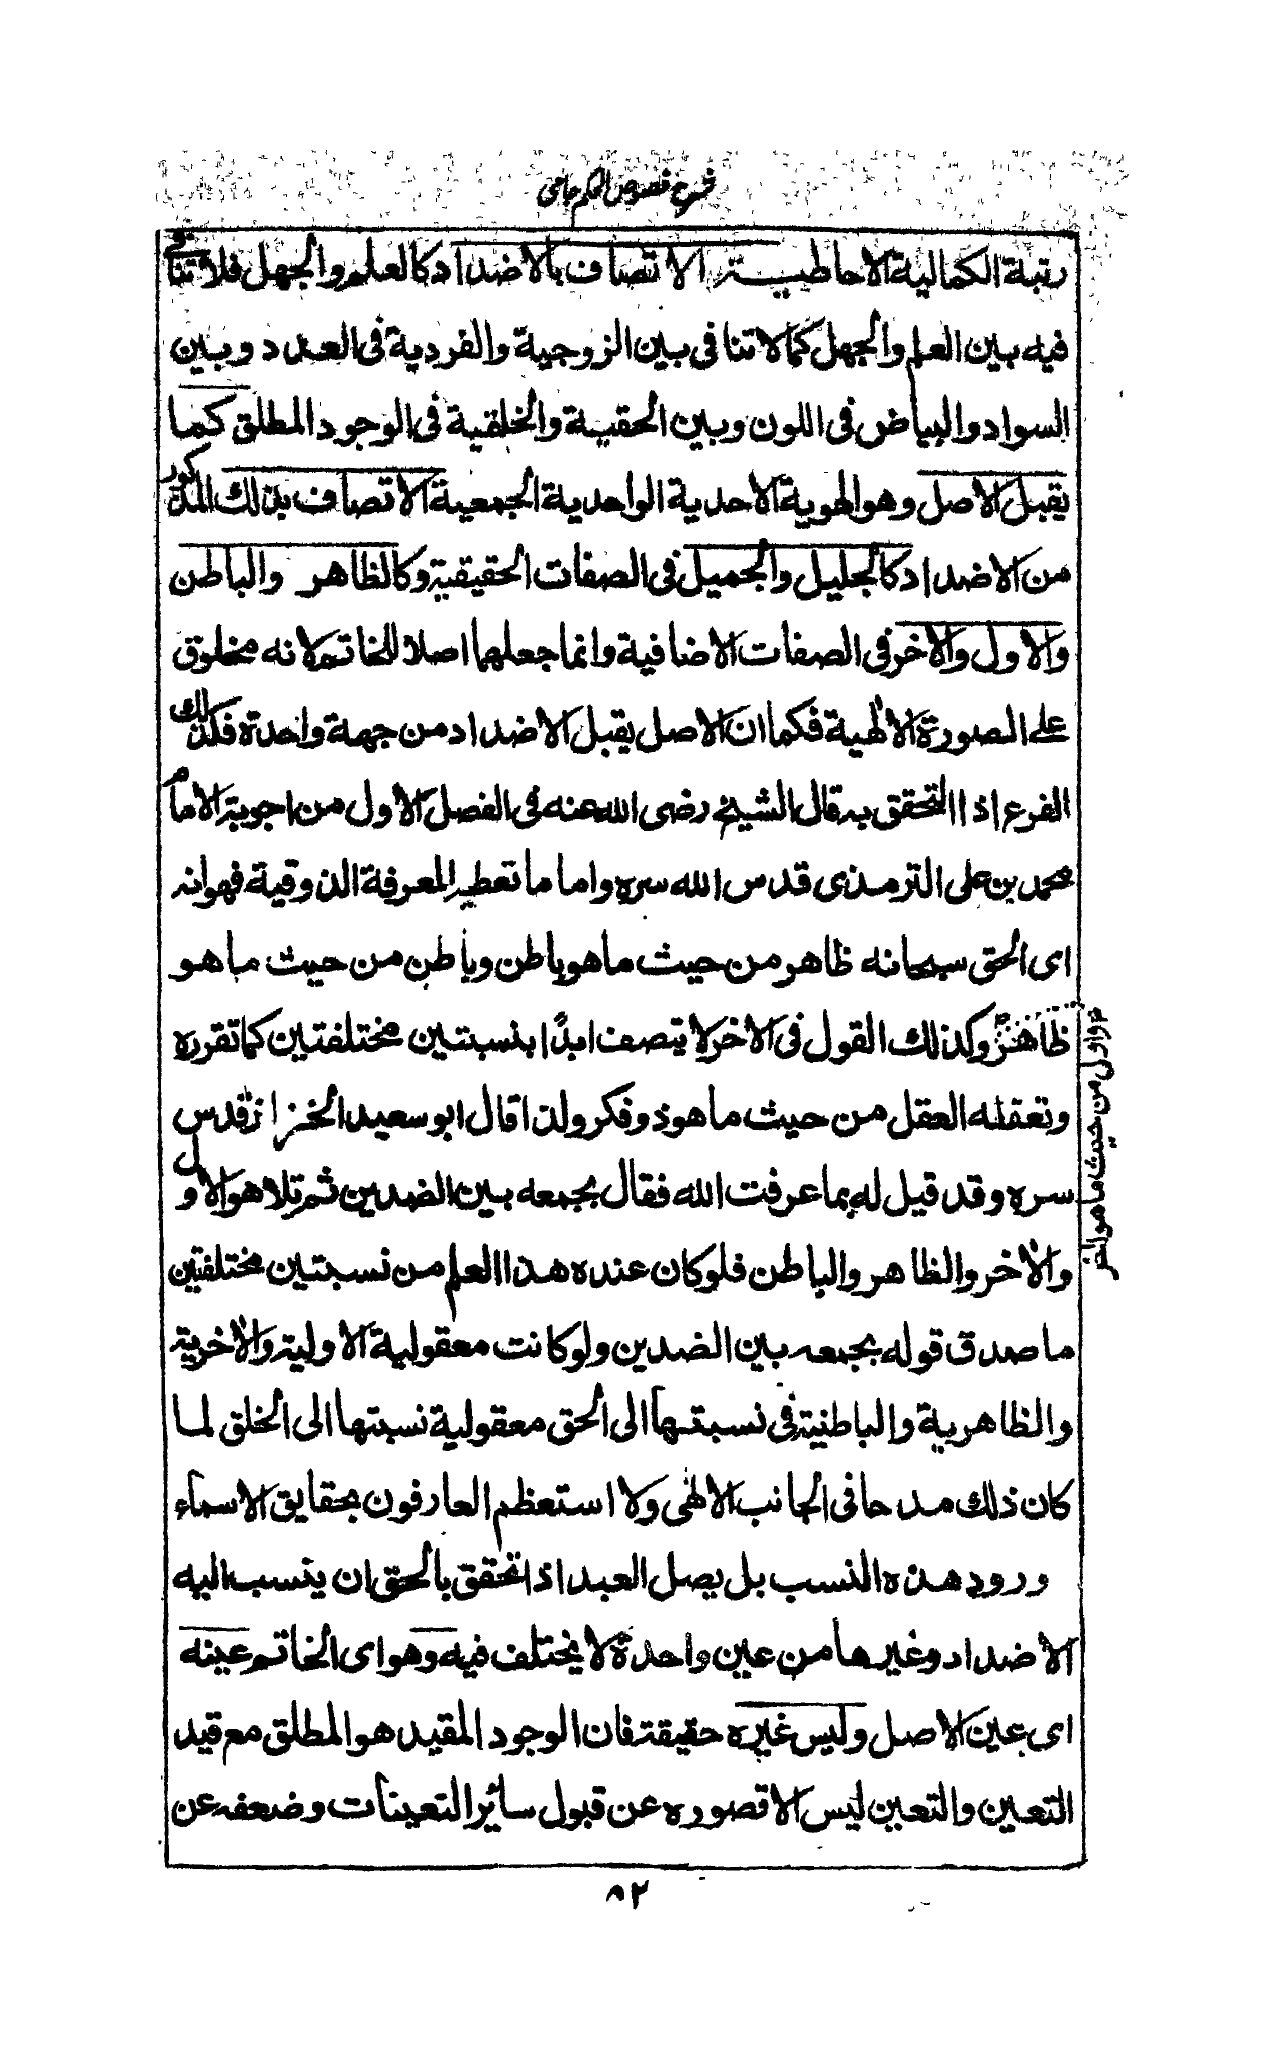 شرح فصوص الحكم جامى
رتبة الكمالية الاحاطية الاتصاف بالاضداد كالعلم والجهل فلا تنافى
فيه بين العلم والجهل كما لا تنافى بين الزوجية والفردية فى العدد وبين
السواد والبياض فى اللون وبين الحقية والخلقية فى الوجود المطلق كما
يقبل الاصل وهو الهوية الاحدية الواحدية الجمعية الاتصاف بذلك المذكور
من الاضداد كالجليل والجميل فى الصفات الحقيقية وكالظاهر والباطن
والاول والاخر فى الصفات الاضافية وانما جعلهما اصلا للخاتم لانه مخلوق
على الصورة الالهية فكما ان الاصل يقبل الاضداد من جهة واحدة فكذلك
الفرع اذا التحقق به قال الشيخ رضى الله عنه فى الفصل الاول من اجوبة الامام
محمد بن على الترمذى قدس الله سره واما ما تعطيه المعرفة الذوقية فهو انه
اى الحق سبحانه ظاهر من حيث ما هو باطن وباطن من حيث ما هو
ظاهر وكذلك القول فى الاخر لا يتصف ابدًا بنسبتين مختلفتين كما تقرره
وتعقله العقل من حيث ما هو ذو فكر ولذا قال ابو سعيد الخزاز قدس
سره وقد قيل له بما عرفت الله فقال بجمعه بين الضدين ثم تلا هو الاول
والاخر والظاهر والباطن فلو كان عنده هذا العلم من نسبتين مختلفتين
ما صدق قوله بجمعه بين الضدين ولو كانت معقولية الاولية والاخرية
والظاهرية والباطنية فى نسبتها الى الحق معقولية نسبتها الى الخلق لما
كان ذلك مدحا فى الجانب الالهى ولا استعظم العارفون بحقايق الاسماء
ورود هذه النسب بل يصل العبد اذا تحقق بالحق ان ينسب اليه
الاضداد وغيرها من عين واحدة لا يختلف فيه وهو اى الخاتم عينه
اى عين الاصل وليس غيره حقيقة فان الوجود المقيد هو المطلق مع قيد
التعين والتعين ليس الا تصوره عن قبول سائر التعينات وضعفه عن
واول من حيث ما هو اخر
٨٢